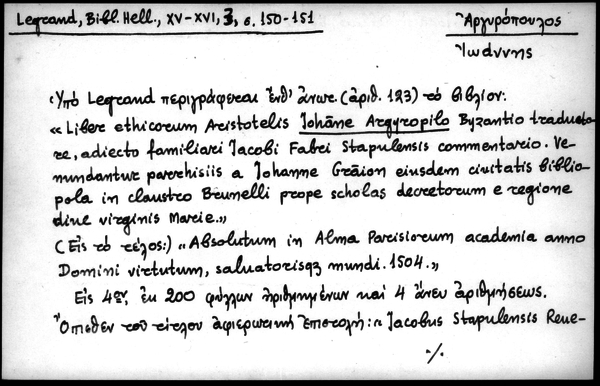 Legrand, Bibl. Hell., XV-XVI, 3, σ. 150-151
Ἀργυρόπουλος
Ἰωάννης
Ὑπὸ Legrand περιγράφεται ἔνθ' ἀνωτ. (ἀριθ. 123) τὸ βιβλίον:
« Liber ethicorum Aristotelis Johāne Argyropilo Byzantio traducto-
re, adiecto familiari Jacobi Fabri Stapulensis commentario. Ve-
nundantur parrhisiis a Johanne Grāion eiusdem ciuitatis biblio-
pola in claustro Brunelli prope scholas decretorum e regione
diue virginis Marie.»
(Εἰς τὸ τέλος:) «Absolutum in Alma Parisiorum academia anno
Domini virtutum, saluatorisqz mundi. 1504.»
Εἰς 4ον, ἐκ 200 φύλλων ἠριθμημένων καὶ 4 ἄνευ ἀριθμήσεως.
Ὄπισθεν τοῦ τίτλου ἀφιερωτικὴ ἐπιστολή: « Jacobus Stapulensis Rene-
./.